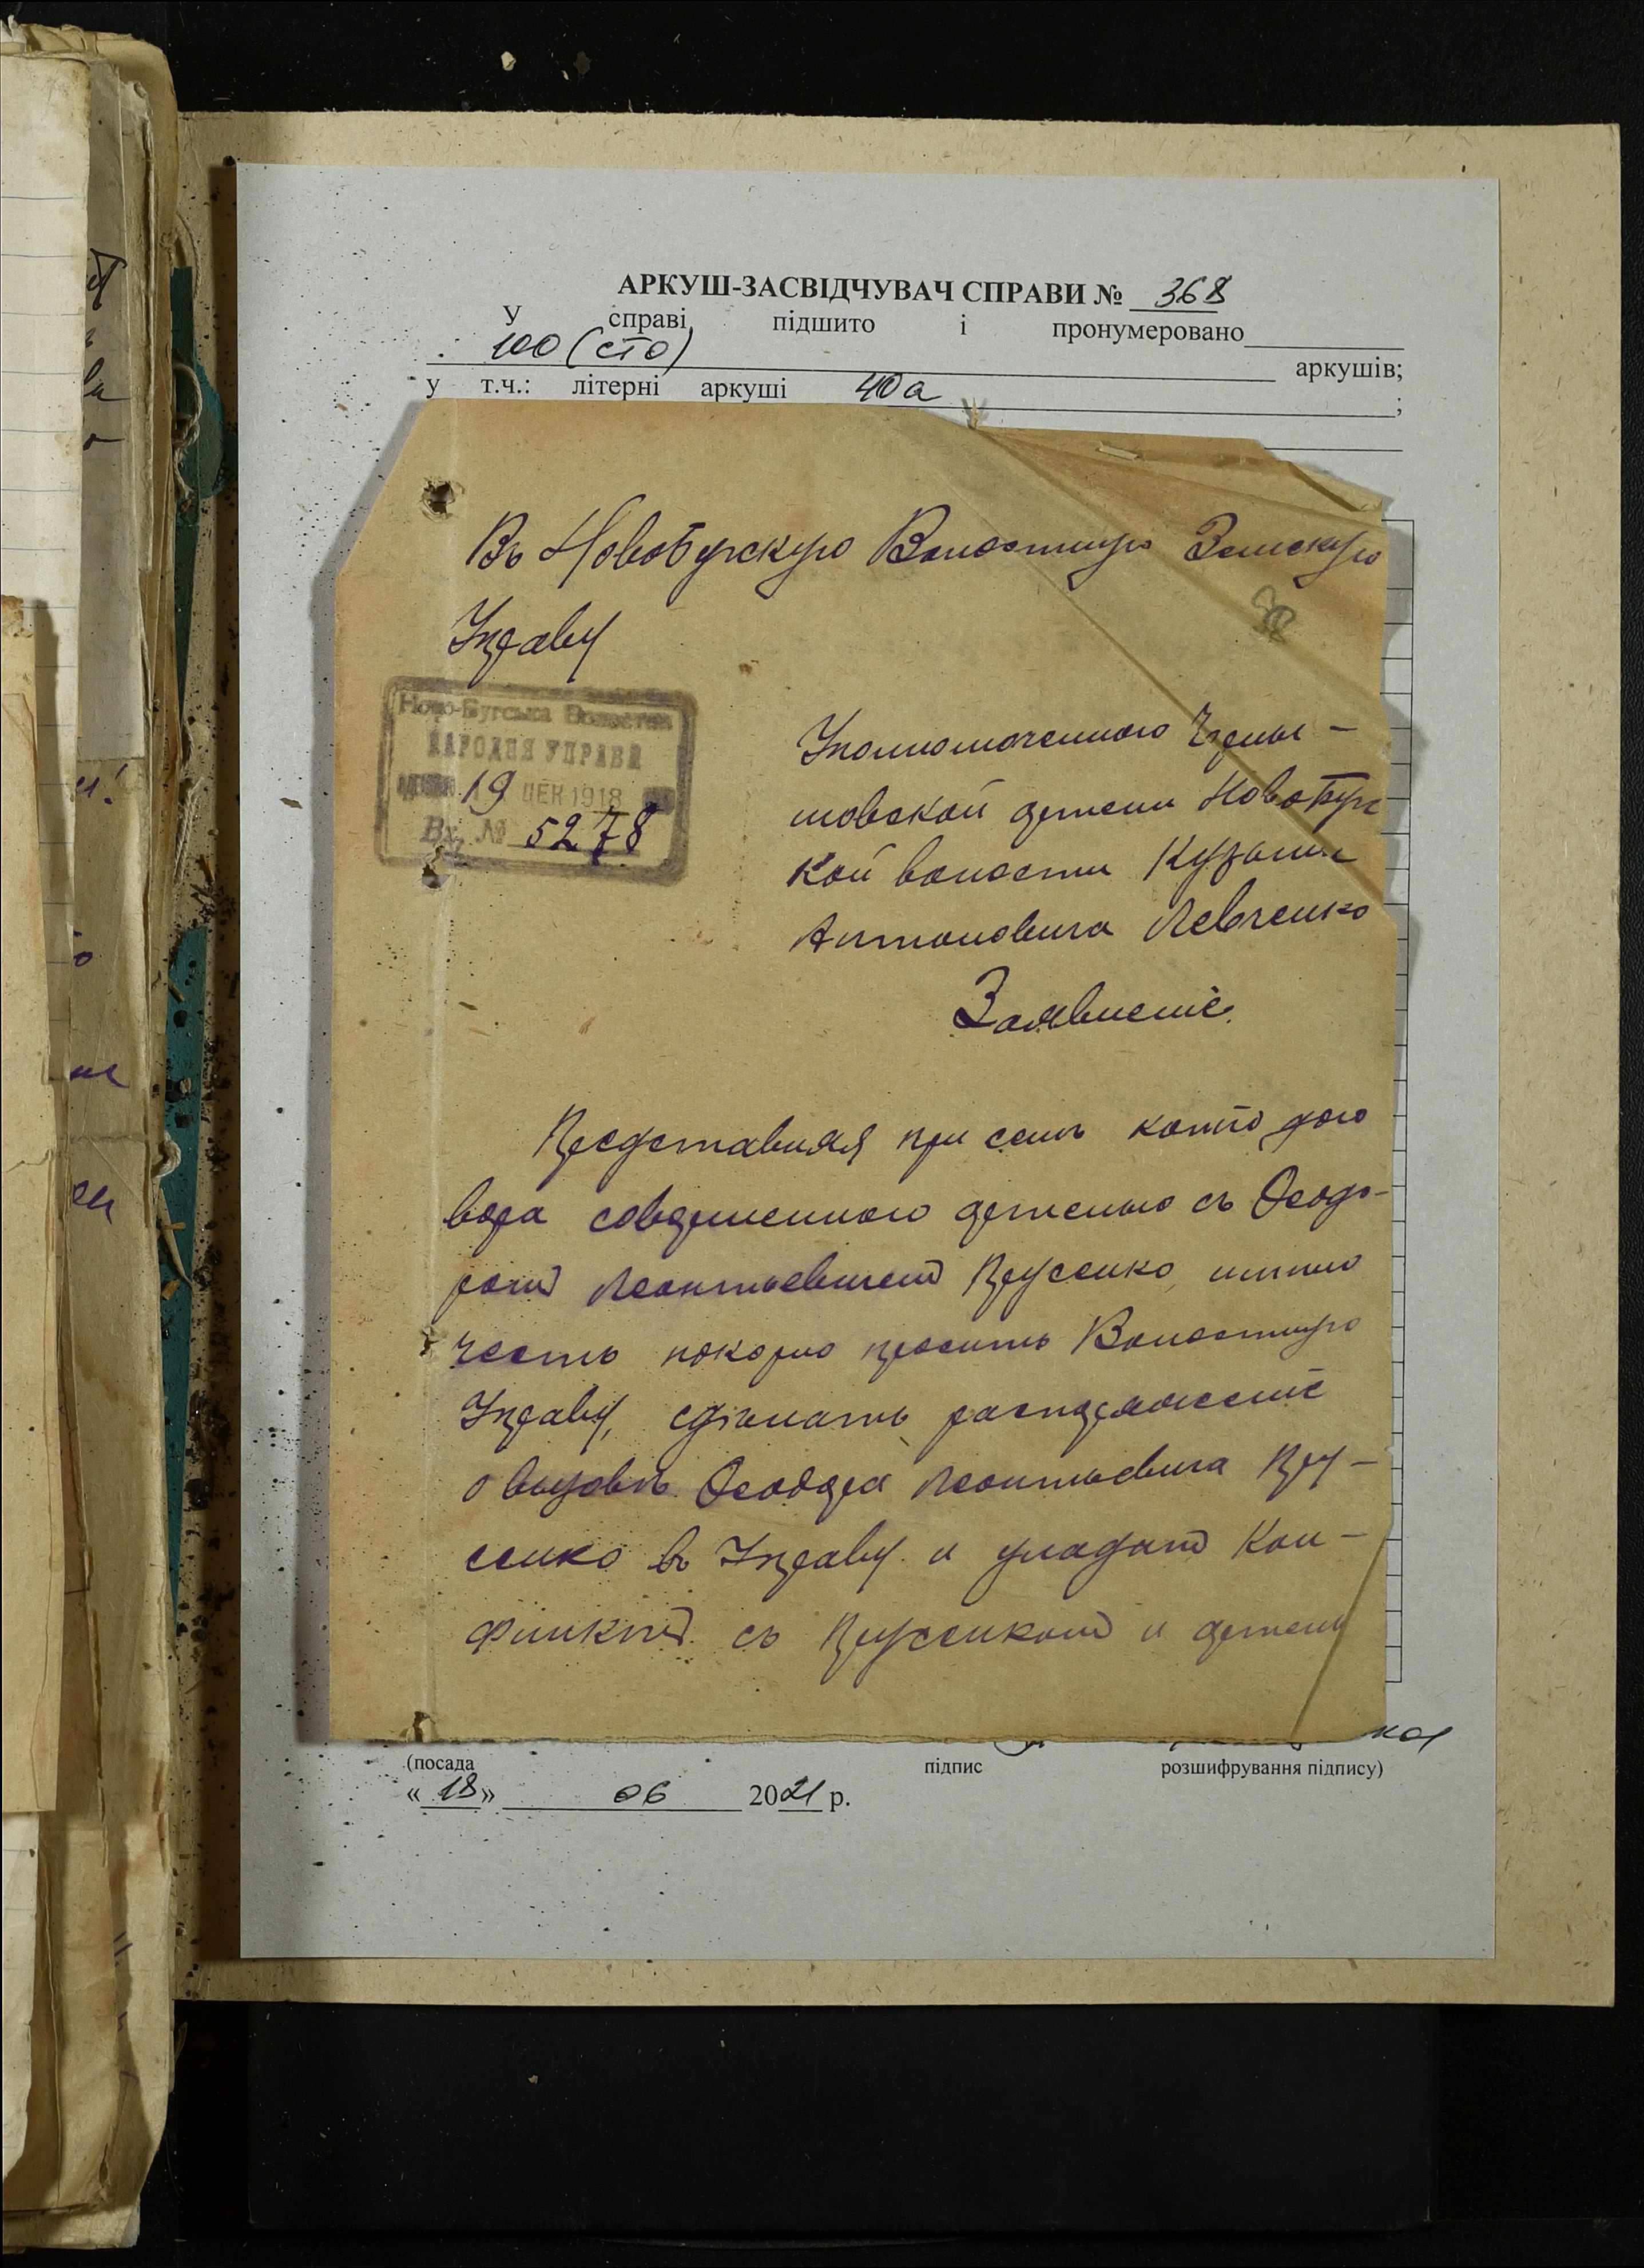 АРКУШ-ЗАСВІДЧУВАЧ СПРАВИ № 368
У справі підшито і пронумеровано
100 (сто) аркушів;
у т.ч.: літерні аркуші 40а ;
Въ Новобугскую Волостную Земскую
Управу
Ново-Бугська Волостна
НАРОДНЯ УПРАВА
19 ДЕК 1918
Вх. № 5278
Уполномоченного
товской артели Новобугс
кой волости Кузьмы
Антоновича Левченко
Заявленіе.
Представляя при семъ копію дого
вора совершенного артелью съ Феодо-
ромъ Леонтьевичемъ Прусенко, имѣю
честь покорно просить Волостную
Управу, сдѣлать распоряженіе
о вызовѣ Феодора Леонтьевича Пру-
сенко въ Управу и уладить кон-
фликтъ съ Прусенкомъ и артели
(посада підпис розшифрування підпису)
«18» 06 2021 р.